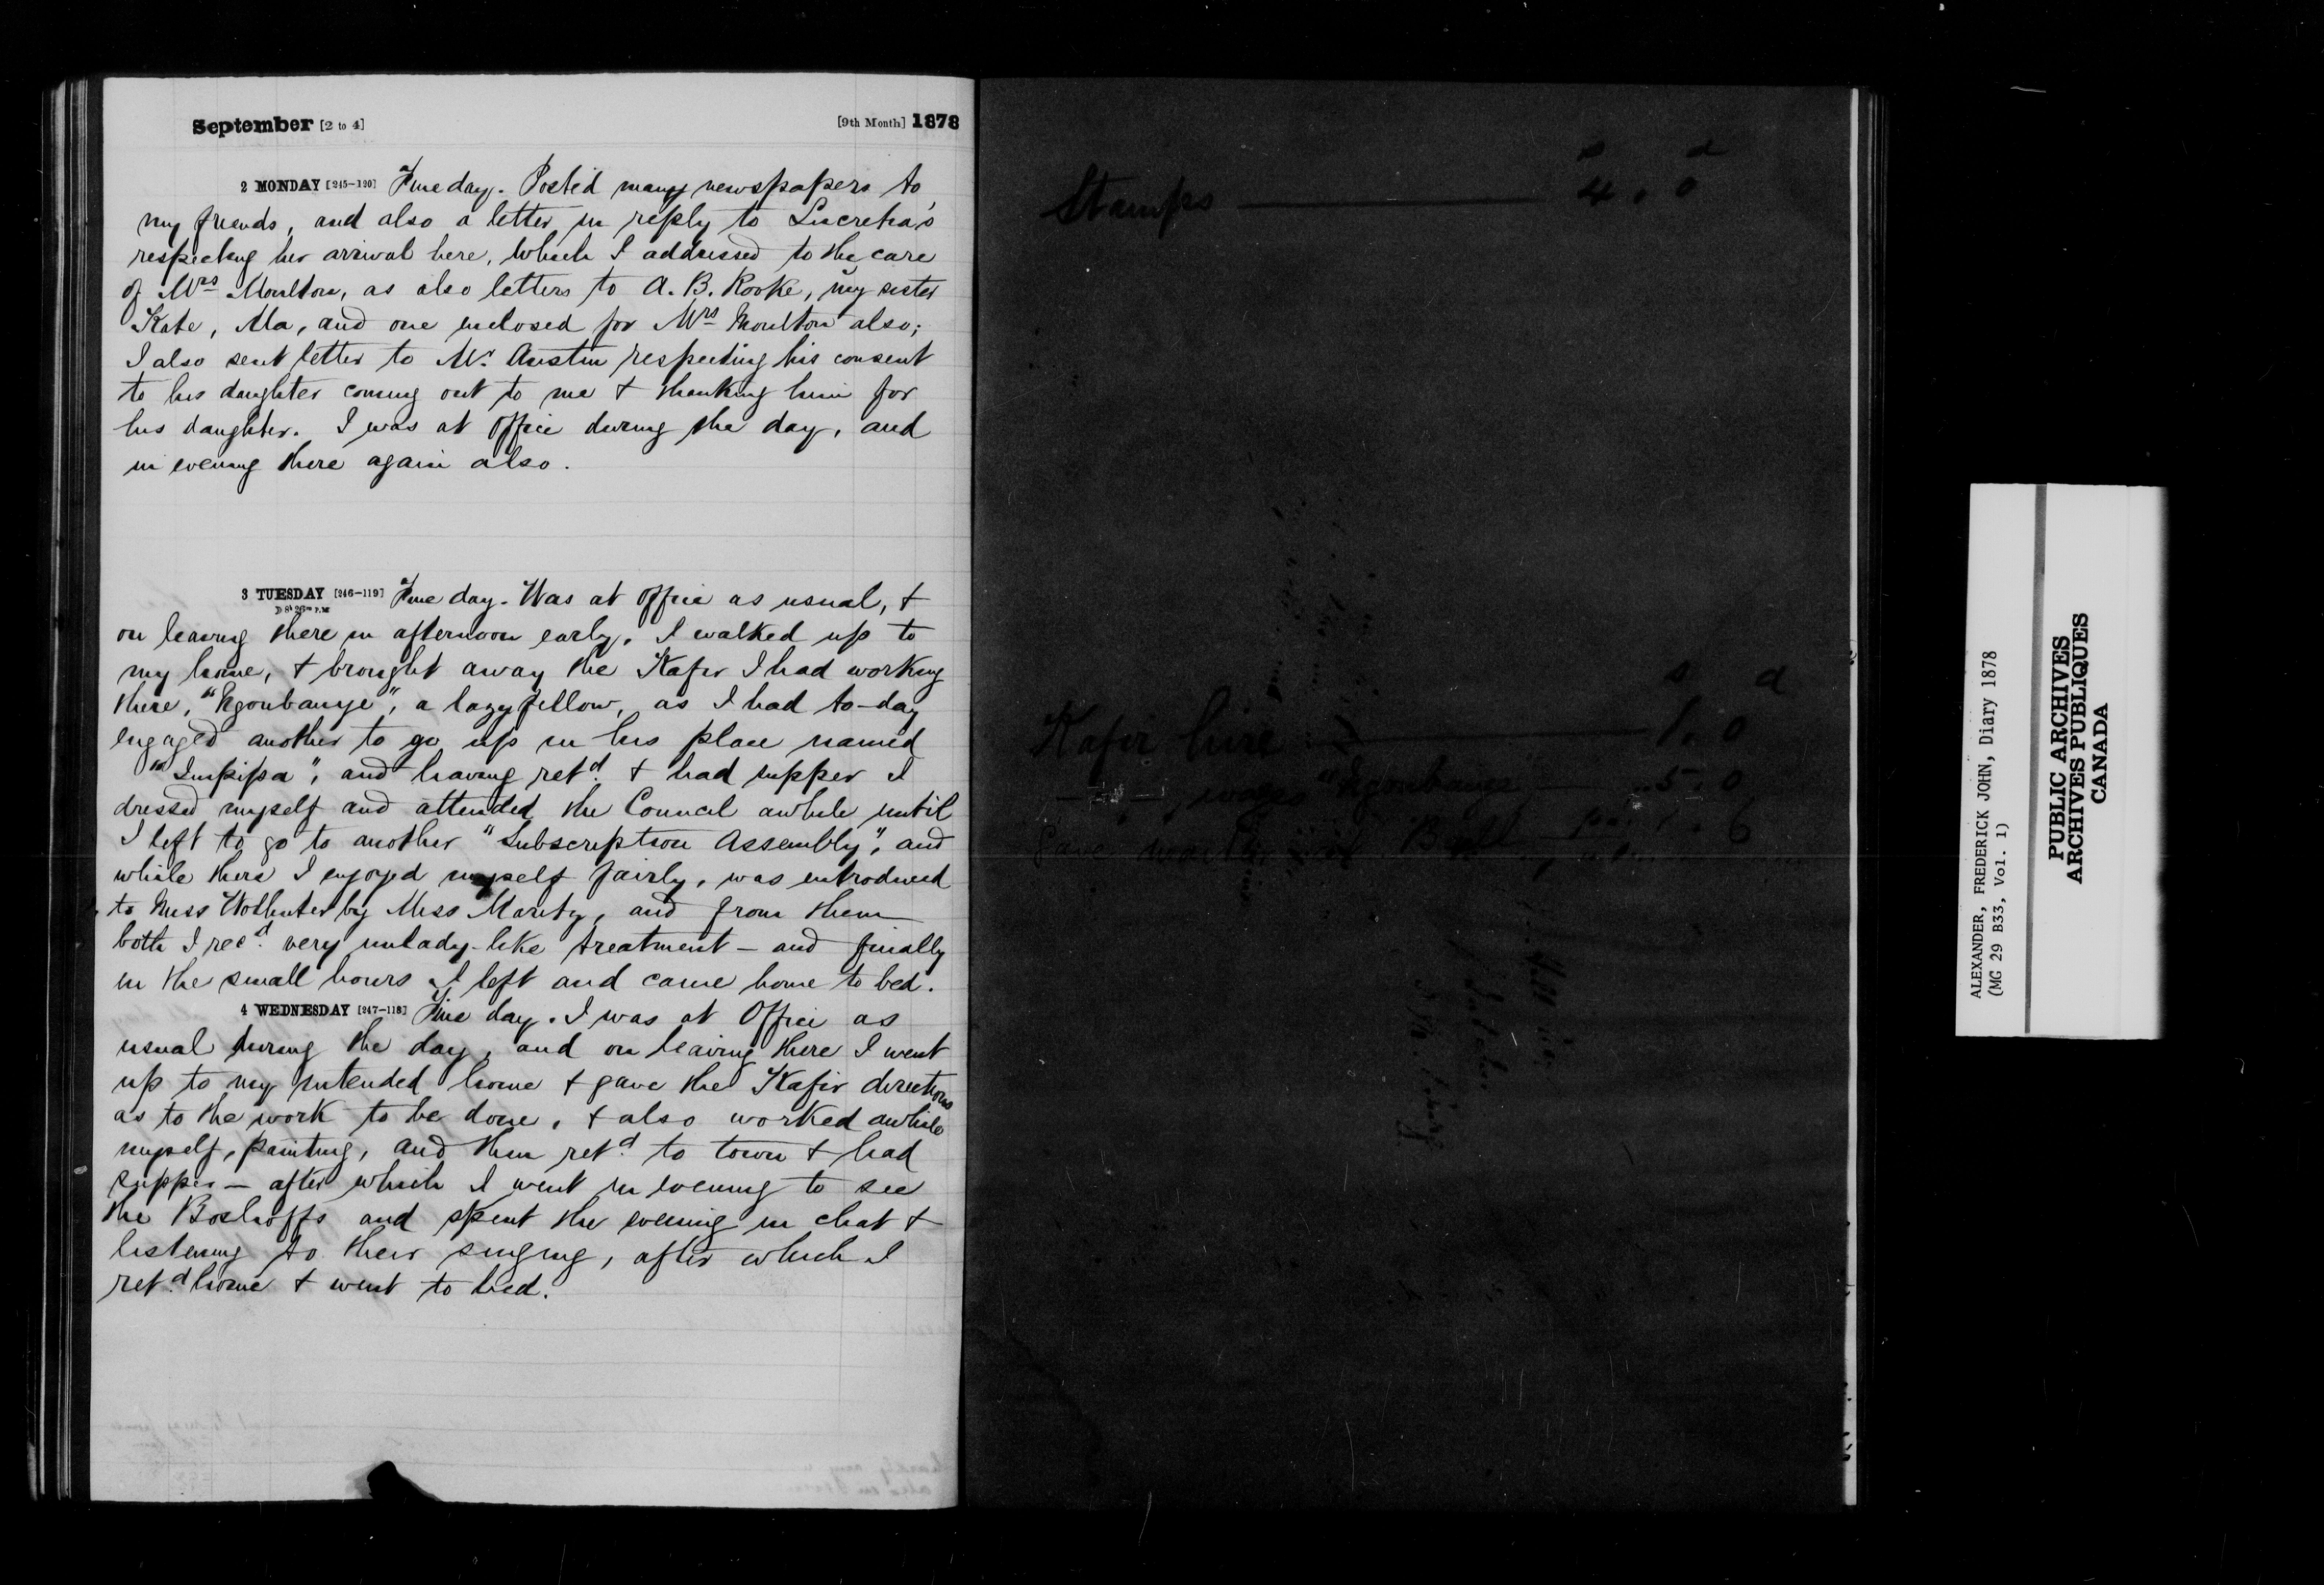 September [2 to 4] [9th Month] 1878
2 MONDAY [245-120] Fine day. Posted many newspapers to
my friends, and also a letter in reply to Lucretia's
respecting her arrival here, which I addressed to the care
of Mrs Moulton, as also letters to A. B. Rooke, my sister
Kate, Ma, and one enclosed for Mrs Moulton also;
I also sent letter to Mr. Austin respecting his consent
to his daughter coming out to me & thanking him for
his daughter. I was at Office during the day, and
in evening there again also.
3 TUESDAY [246-119] Fine day. Was at Office as usual, &
on leaving there in afternoon early, I walked up to
my home, & brought away the Kafir I had working
there, "Ngonbanye", a lazy fellow, as I had to-day
engaged another to go up in his place named
"Impipa", and having retd. & had supper I
dressed myself and attended the Council awhile until
I left to go to another "Subscription Assembly", and
while there I enjoyed myself fairly, was introduced
to Miss by Miss Maritz, and from them
both I recd. very unlady-like treatment - and finally
in the small hours I left and came home to bed.
4 WEDNESDAY [247-118] Fine day. I was at Office as
usual during the day, and on leaving there I went
up to my intended home & gave the Kafir directions
as to the work to be done, & also worked awhile
myself, painting, and then retd. to town & had
supper - after which I went in evening to see
the Boshoffs and spent the evening in chat &
listening to their singing, after which I
retd. home & went to bed.
s d
Stamps 4. 0
s d
Kafir hire 1. 0
"Ngonbanye" 5. 0
Ball 6
ALEXANDER, FREDERICK JOHN, Diary 1878
(MG 29 B33, Vol. 1)
PUBLIC ARCHIVES
ARCHIVES PUBLIQUES
CANADA